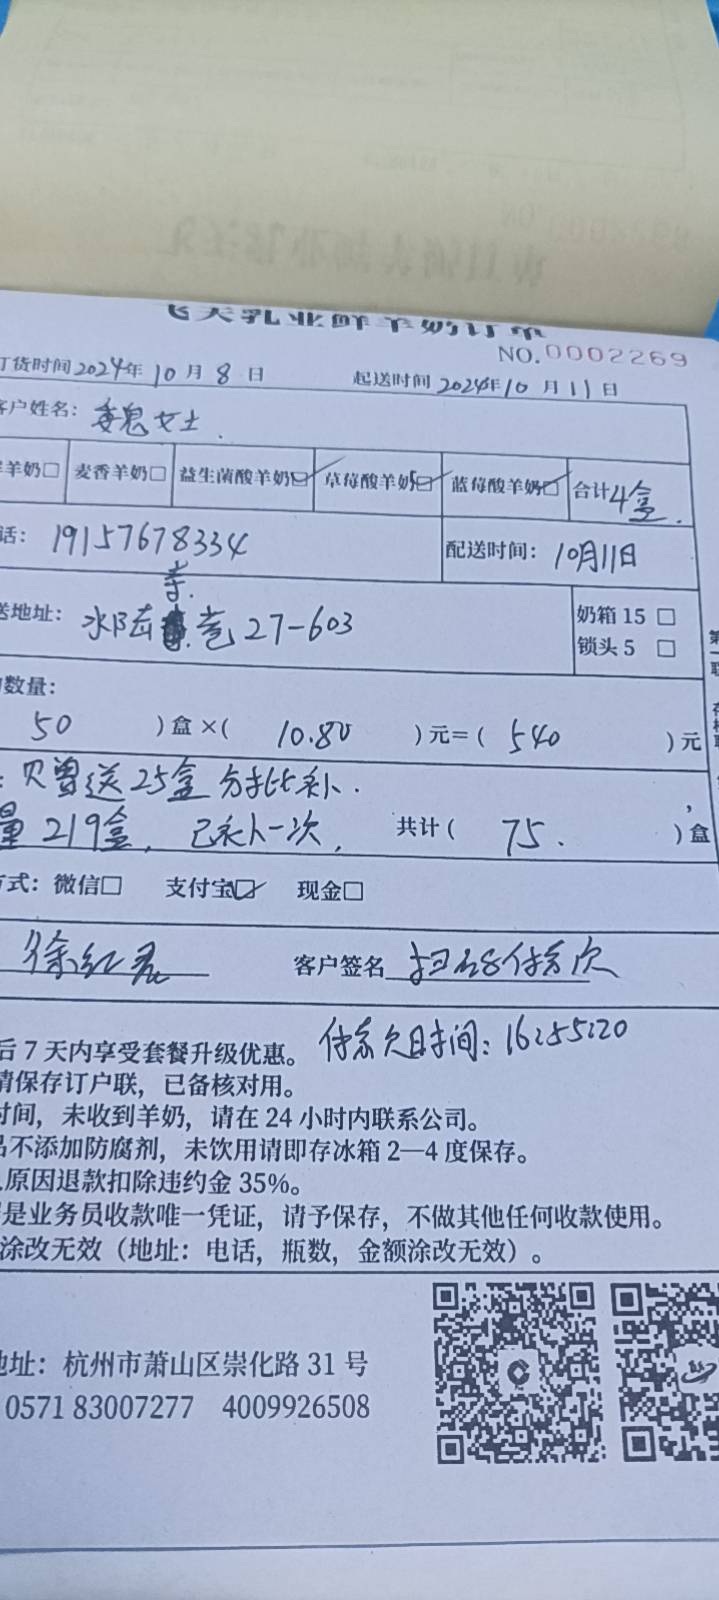 飞天乳业鲜羊奶订单
NO.0002269
订货时间2024年10月8日 起送时间2024年10月11日
客户姓名: 魏女士.
羊奶□ 麦香羊奶□ 益生菌酸羊奶☑ 草莓酸羊奶☑ 蓝莓酸羊奶☑ 合计4盒.
话: 19157678334 配送时间: 10月11日
送地址: 27-603 奶箱 15 □
锁头 5 □
数量:
50 )盒×( 10.80 )元=( 540 )元
: 贝曾送25盒
量 219盒, 已补一次, 共计( 75. )盒
方式: 微信□ 支付宝☑ 现金□
徐红 客户签名
时间: 16255220
后 7 天内享受套餐升级优惠。
请保存订户联，已备核对用。
时间，未收到羊奶，请在 24 小时内联系公司。
品不添加防腐剂，未饮用请即存冰箱 2—4 度保存。
原因退款扣除违约金 35%。
是业务员收款唯一凭证，请予保存，不做其他任何收款使用。
涂改无效（地址：电话，瓶数，金额涂改无效）。
地址：杭州市萧山区崇化路 31 号
0571 83007277 4009926508